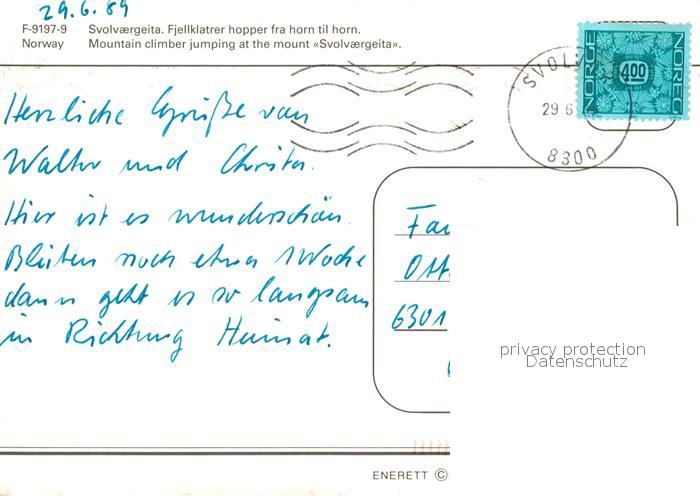 29.6.89
F-9197-9 Svolværgeita. Fjellklatrer hopper fra horn til horn.
Norway Mountain climber jumping at the mount «Svolværgeita».
NORGE 400 NOREG
SVOLV
29 6
8300
Herzliche Grüße von
Walter und Christa.
Hier ist es wunderschön.
Bleiben noch etwa 1 Woche
dann geht es so langsam
in Richtung Heimat.
Fa
Ott
6301
privacy protection
Datenschutz
ENERETT ©